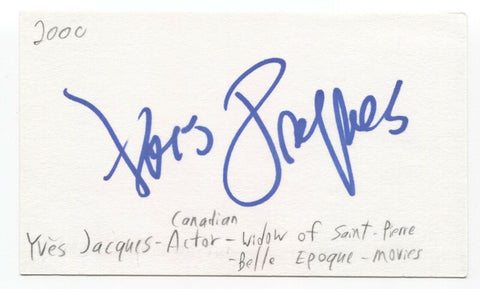 2000
Yves Jacques
Canadian
Yvès Jacques - Actor - Widow of Saint-Pierre
- Belle Epoque - movies